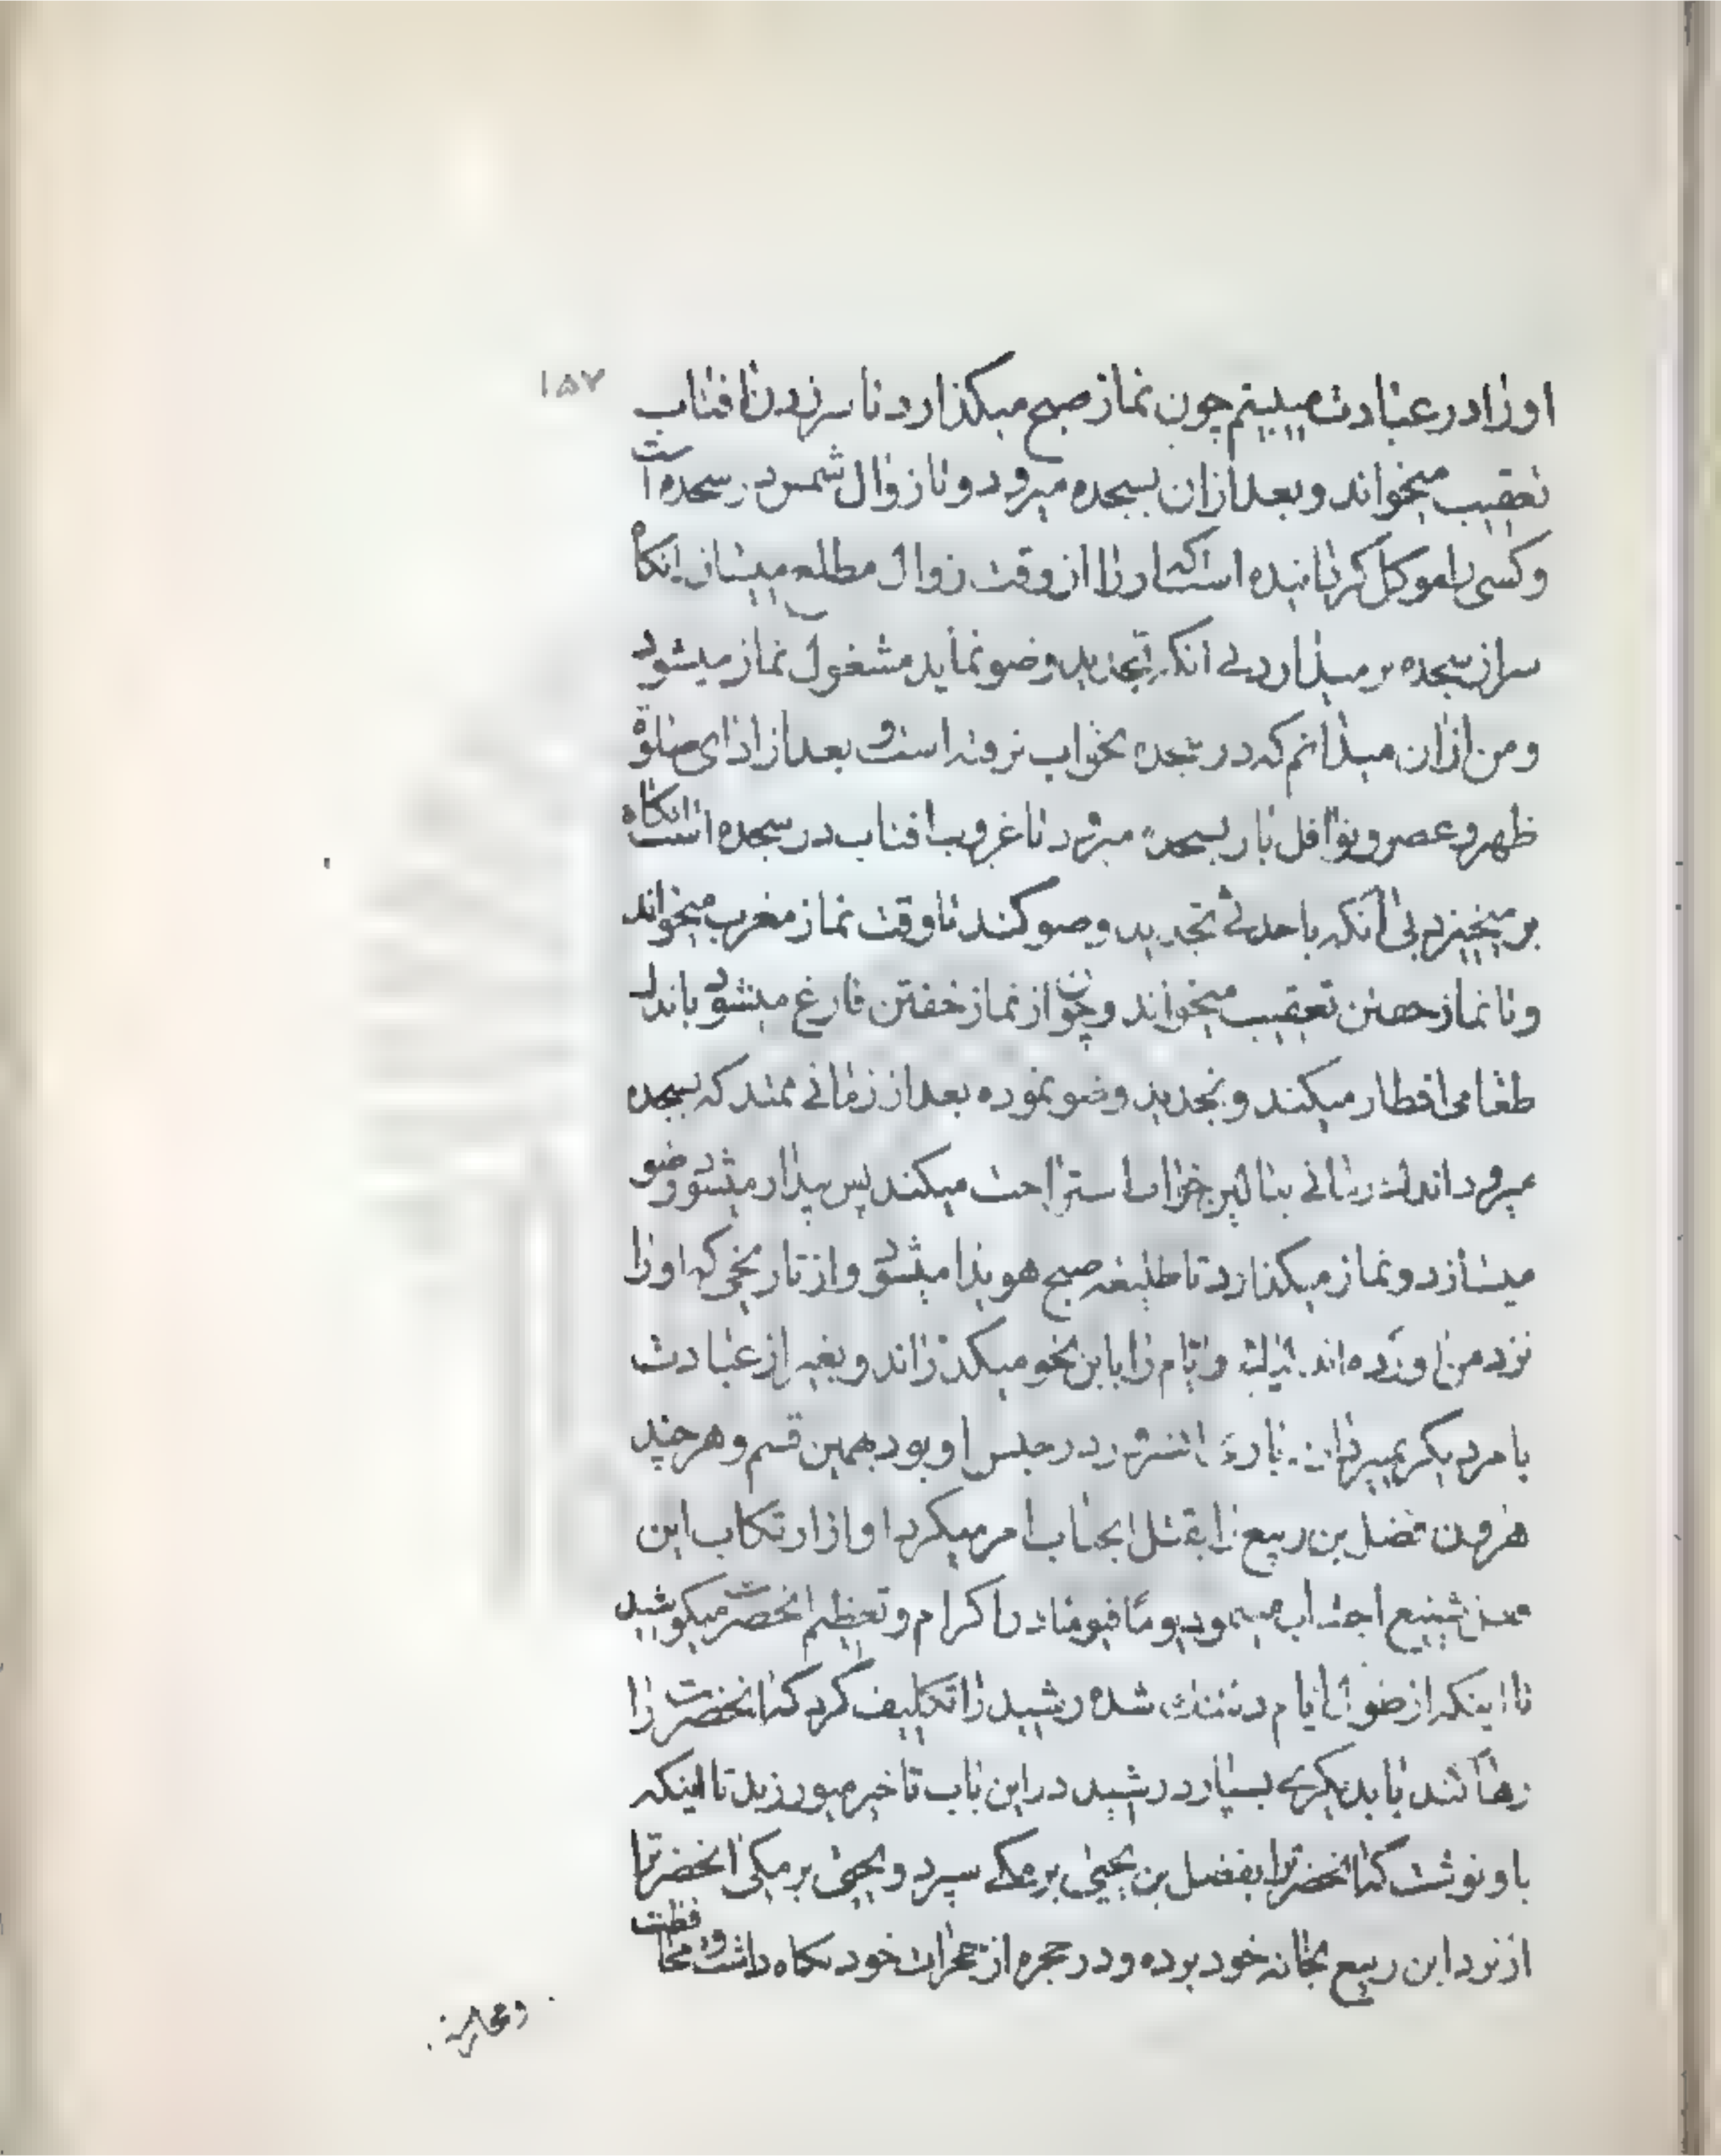 ۱۵۷
او را در عبادت میبینم چون نماز صبح میکذارد تا سر زدن افتاب
تعقیب میخواند و بعد از ان بسجده میرود و تا زوال شمس در سجده است
و کسی را موکل کردانیده است که او را از وقت زوال مطلع میسازد انکاه
سر از سجده بر میدارد بی انکه تجدید وضو نماید مشغول نماز میشود
و من از ان میدانم که در سجده بخواب نرفته است و بعد از ادای صلوة
ظهر و عصر و نوافل باز بسجده میرود تا غروب افتاب در سجده است انکاه
بر میخیزد بی انکه باحدثی تجدید وضو کند تا وقت نماز مغرب میخواند
و تا نماز خفتن تعقیب میخواند و چون از نماز خفتن فارغ میشود باندک
طعامی افطار میکند و تجدید وضو نموده بعد از زمانی ممتد که بسجده
میرود اندک زمانی استراحت میکند پس بیدار میشود و وضو
میسازد و نماز میکذارد تا طلیعه صبح هویدا میشود و از تاریخی که او را
نزد من اورده اند لیالی و ایام را باین نحو میکذراند و بغیر از عبادت
بامر دیکر نمیپردازد سرور در حبس او بود بهمین قسم و هر چند
هرون فضل بن ربیع را بقتل انجناب امر میکرد او از ارتکاب این
شنیع اجتناب مینمود یوما فیوما در اکرام و تعظیم انحضرت میکوشید
تا اینکه از طول ایام دلتنک شده رشید را تکلیف کرد که انحضرت را
رها کند یا بدیکری بسپارد رشید در این باب تاخیر میورزید تا اینکه
باو نوشت که انحضرترا بفضل بن یحیی برمکی سپرد و یحیی برمکی انحضرترا
از نزد ابن ربیع بخانه خود برده و در حجره از حجرات خود نکاه داشت و محافظت